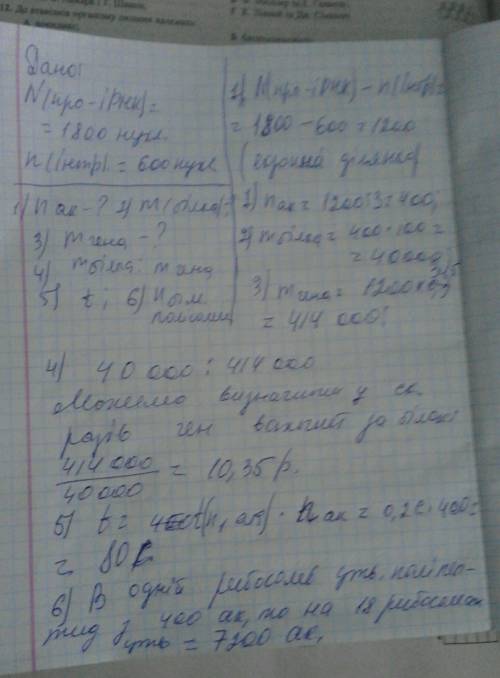 12. До
Дано:
N(про-іРНК)=
= 1800 нукл.
n(інтр) = 600 нукл
1) n ак - ? 2) m(білка)-?
3) m гена - ?
4) m білка : m гена
5) t; 6) n ам.
1) N(про-іРНК) - n(інтр)=
= 1800 - 600 = 1200
1) n ак = 1200:3 = 400;
2) m білка = 400·100 =
= 40000;
3) m гена = 1200×345
= 414 000;
4) 40 000 : 414 000
Можемо визначити у ск.
разів ген важчий за білок:
414 000
40000
= 10,35 р.
5) t = t(п, ак) · n ак = 0,2с·400=
= 80с
6) В одній рибосомі утв. поліпеп-
тид з 400 ак, то на 18 рибосомах
утв = 7200 ак.